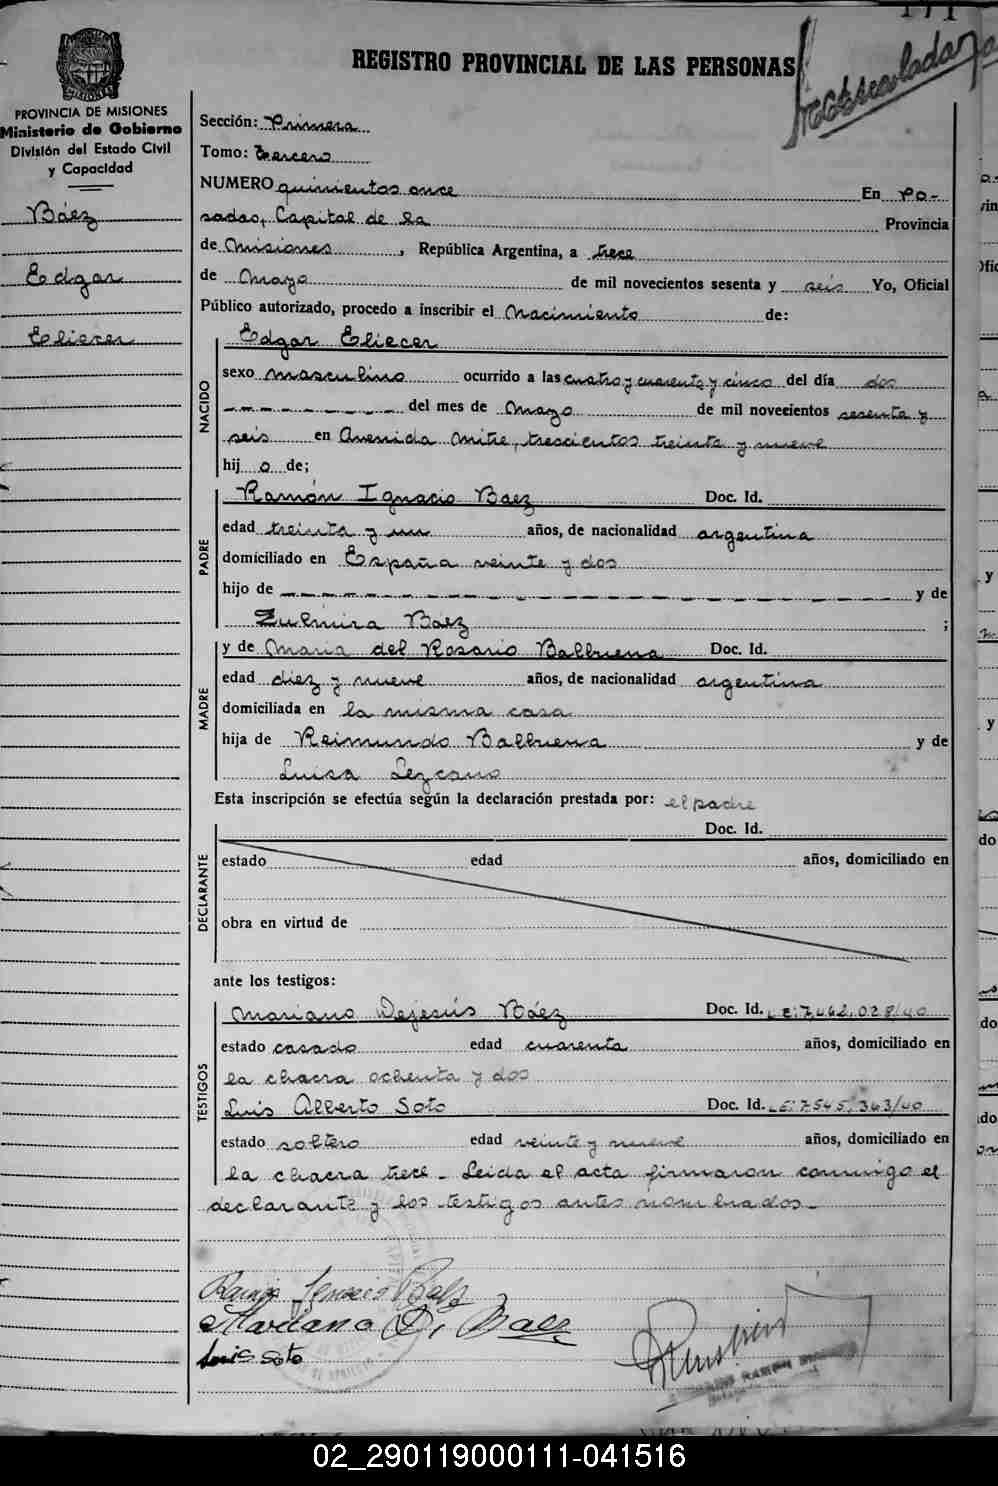 REGISTRO PROVINCIAL DE LAS PERSONAS
Matriculado
PROVINCIA DE MISIONES
Ministerio de Gobierno
División del Estado Civil
y Capacidad
Báez
Edgar
Eliecer
Sección: Primera
Tomo: tercero
NUMERO quinientos once En Po-
sadas, Capital de la Provincia
de Misiones, República Argentina, a trece
de Mayo de mil novecientos sesenta y seis Yo, Oficial
Público autorizado, procedo a inscribir el Nacimiento de:
NACIDO
Edgar Eliecer
sexo masculino ocurrido a las cuatro y cuarenta y cinco del día dos
del mes de Mayo de mil novecientos sesenta y
seis en Avenida Mitre, trescientos treinta y nueve
hij o de;
PADRE
Ramón Ignacio Baez Doc. Id.
edad treinta y un años, de nacionalidad argentina
domiciliado en España veinte y dos
hijo de y de
Zulmira Báez ;
MADRE
y de Maria del Rosario Balbuena Doc. Id.
edad diez y nueve años, de nacionalidad argentina
domiciliada en la misma casa
hija de Reimundo Balbuena y de
Luisa Lezcano
Esta inscripción se efectúa según la declaración prestada por: el padre
DECLARANTE
Doc. Id.
estado edad años, domiciliado en
obra en virtud de
ante los testigos:
TESTIGOS
Mariano Dejesús Báez Doc. Id. L.E: 7.462.028/40
estado casado edad cuarenta años, domiciliado en
la chacra ochenta y dos
Luis Alberto Soto Doc. Id. L.E: 7545.363/40
estado soltero edad veinte y nueve años, domiciliado en
la chacra trece - Leida el acta firmaron conmigo el
declarante y los testigos antes nombrados -
Ramón Ignacio Baez
Mariano D, Baez
Luis Soto
02_290119000111-041516